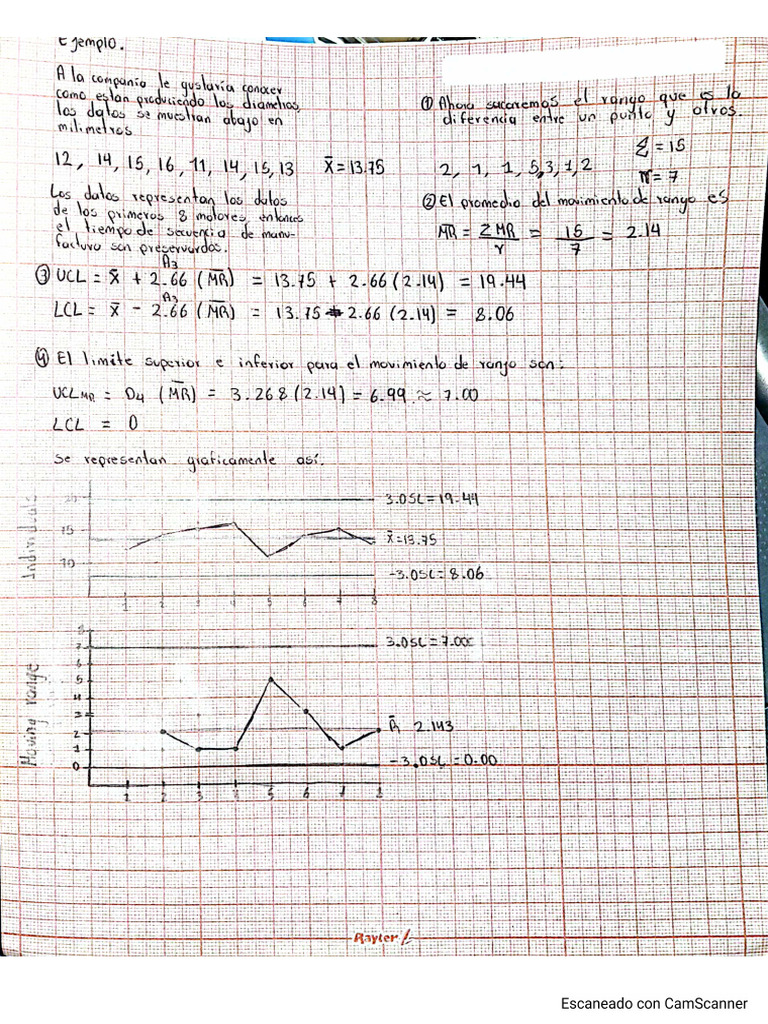 Ejemplo.
A la compañia le gustaria conocer
como estan produciendo los diametros,
los datos se muestran abajo en
milimetros
12, 14, 15, 16, 11, 14, 15, 13 X̄ = 13.75
Los datos representan los datos
de los primeros 8 motores, entonces
el tiempo de secuencia de manu-
factura son preservardos.
① Ahora sacaremos el rango que es la
diferencia entre un punto y otros.
Σ = 15
2, 1, 1, 5, 3, 1, 2
r = 7
② El promedio del movimiento de rango es
MR = Σ MR / r = 15 / 7 = 2.14
A3
③ UCL = X̄ + 2.66 (M̄R̄) = 13.75 + 2.66 (2.14) = 19.44
A3
LCL = X̄ - 2.66 (M̄R̄) = 13.75 - 2.66 (2.14) = 8.06
④ El limite superior e inferior para el movimiento de rango son:
UCL MR = D4 (M̄R̄) = 3.268 (2.14) = 6.99 ≈ 7.00
LCL = 0
Se representan graficamente asi.
Individuals
20
15
10
3.0SL = 19.44
X̄ = 13.75
-3.0SL = 8.06
1 2 3 4 5 6 7 8
Moving range
8
7
6
5
4
3
2
1
0
3.0SL = 7.00
R̄ 2.143
-3.0SL = 0.00
1 2 3 4 5 6 7 8
Rayter
Escaneado con CamScanner